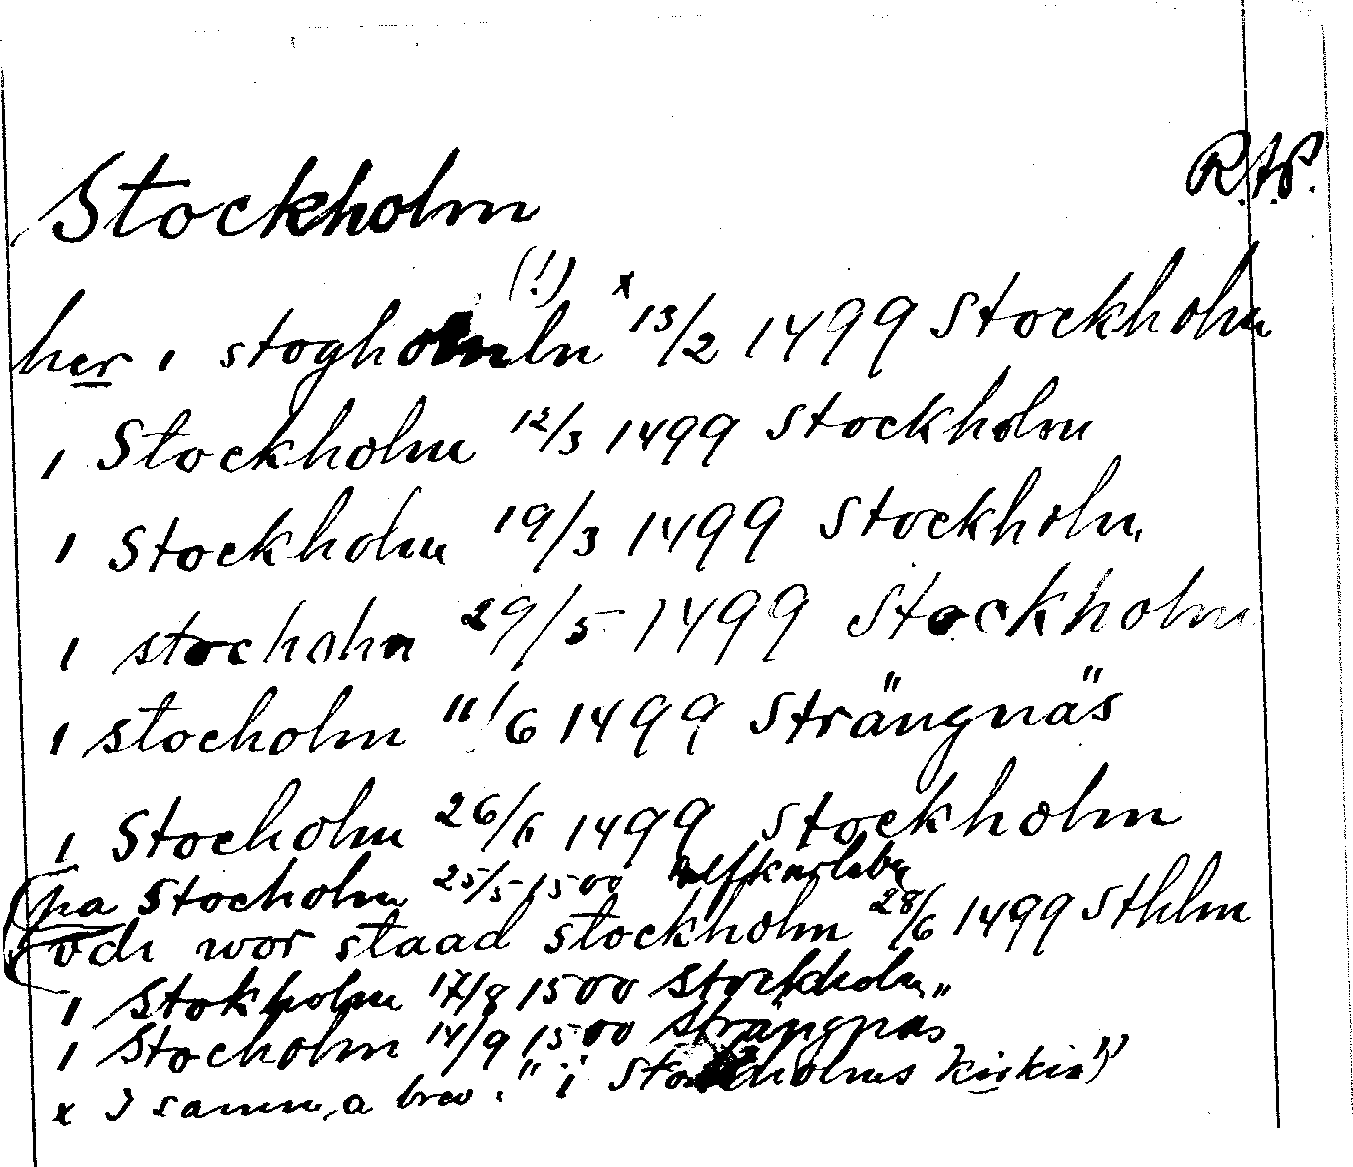 R.A.P.
Stockholm
(!)
her i stoghomln x 13/2 1499 Stockholm
i Stockholm 12/3 1499 Stockholm
i Stockholm 19/3 1499 Stockholm
i stocholm 29/5 1499 Stockholm
i stocholm 11/6 1499 Strängnäs
i Stocholm 26/6 1499 Stockholm
pa Stocholm 25/5 1500 Elfkarleby
i odr wor staad stockholm 28/6 1499 Sthlm
i Stokholm 17/8 1500 Stockholm
i Stocholm 14/9 1500 Strängnäs
x I samma brev: "i Stockholms kirkia"